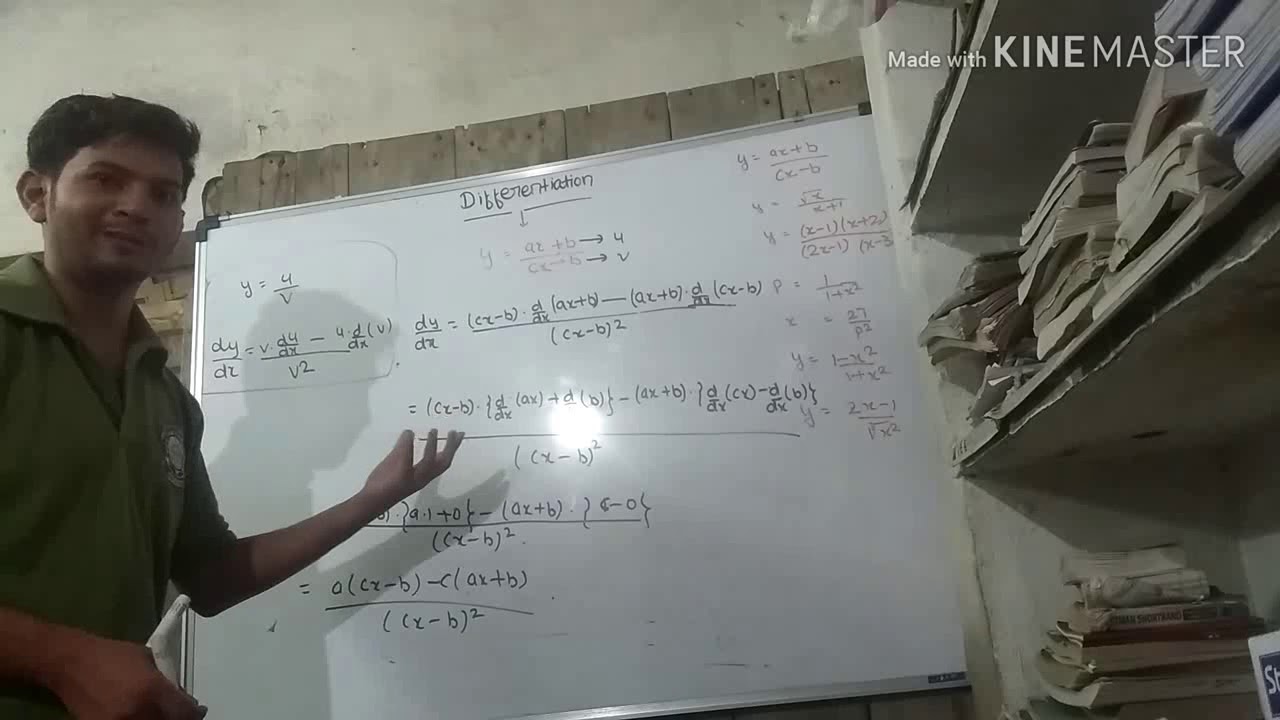 Made with KINEMASTER
Differentiation
y = ax+b → u
cx-b → v
y = u
v
dy = v. du - u. d (v)
dx dx dx
v²
dy = (cx-b) · d (ax+b) - (ax+b) · d (cx-b)
dx dx dx
(cx-b)²
= (cx-b) · { d (ax) + d (b)} - (ax+b) · } d (cx) - d (b)}
dx dx dx
(cx-b)²
}a.1+0} - (ax+b) · } c-0{
(cx-b)²
= a(cx-b) - c(ax+b)
(cx-b)²
y = ax+b
cx-b
y = √x
x+1
y = (x-1)(x+2)
(2x-1) (x-3
p = 1
1+x²
x = 27
p²
y = 1-x²
1+x²
y = 2x-1
√x²
SHORTHAND
St